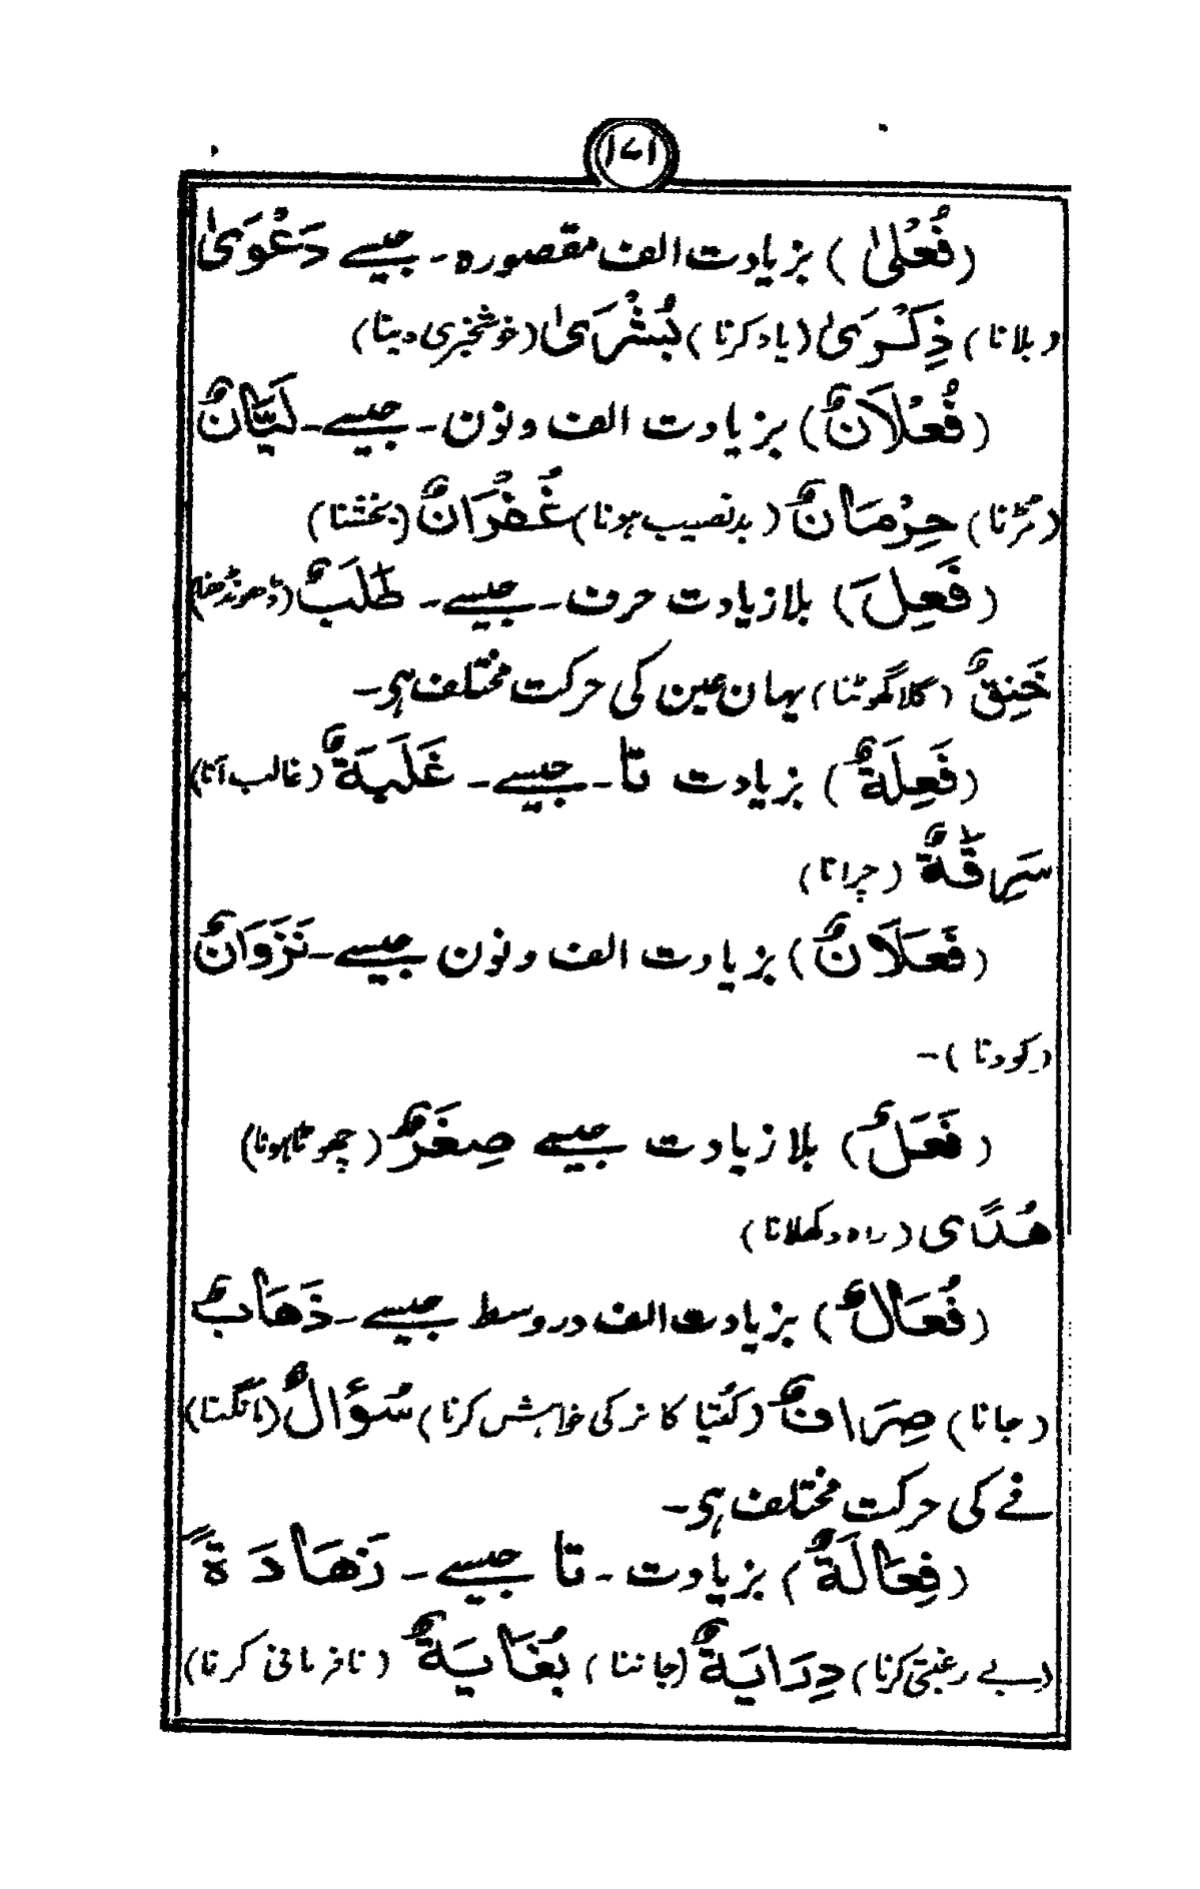 ۱۷۱
(فُعْلیٰ) بزیادت الف مقصورہ - جیسے دَعْوَیٰ
(بلانا) ذِکْرَیٰ (یاد کرنا) بُشْرَیٰ (خوشخبری دینا)
(فُعْلَانٌ) بزیادت الف و نون - جیسے - لَیَّانٌ
(مڑنا) حِرْمَانٌ (بدنصیب ہونا) غُفْرَانٌ (بخشنا)
(فَعِلَ) بلا زیادت حرف - جیسے - طَلَبٌ (ڈھونڈھنا)
خَنِقٌ (گلا گھوٹنا) یہان عین کی حرکت مختلف ہی -
(فَعِلَةٌ) بزیادت تا - جیسے - غَلَبَةٌ (غالب آنا)
سَرِقَةٌ (چرانا)
(فَعَلَانٌ) بزیادت الف و نون جیسے - نَزَوَانٌ
(کودنا) -
(فَعَلٌ) بلا زیادت جیسے صِغَرٌ (چھوٹا ہونا)
ھُدًی (راہ دکھلانا)
(فُعَالٌ) بزیادت الف در وسط جیسے - ذَھَابٌ
(جانا) صِرَافٌ (کُتیا کا نر کی خواہش کرنا) سُؤَالٌ (مانگنا)
فے کی حرکت مختلف ہی -
(فِعَالَةٌ) بزیادت - تا جیسے - زَھَادَةً
(بے رغبتی کرنا) دِرَایَةٌ (جاننا) بُغَایَةٌ (نافرمانی کرنا)